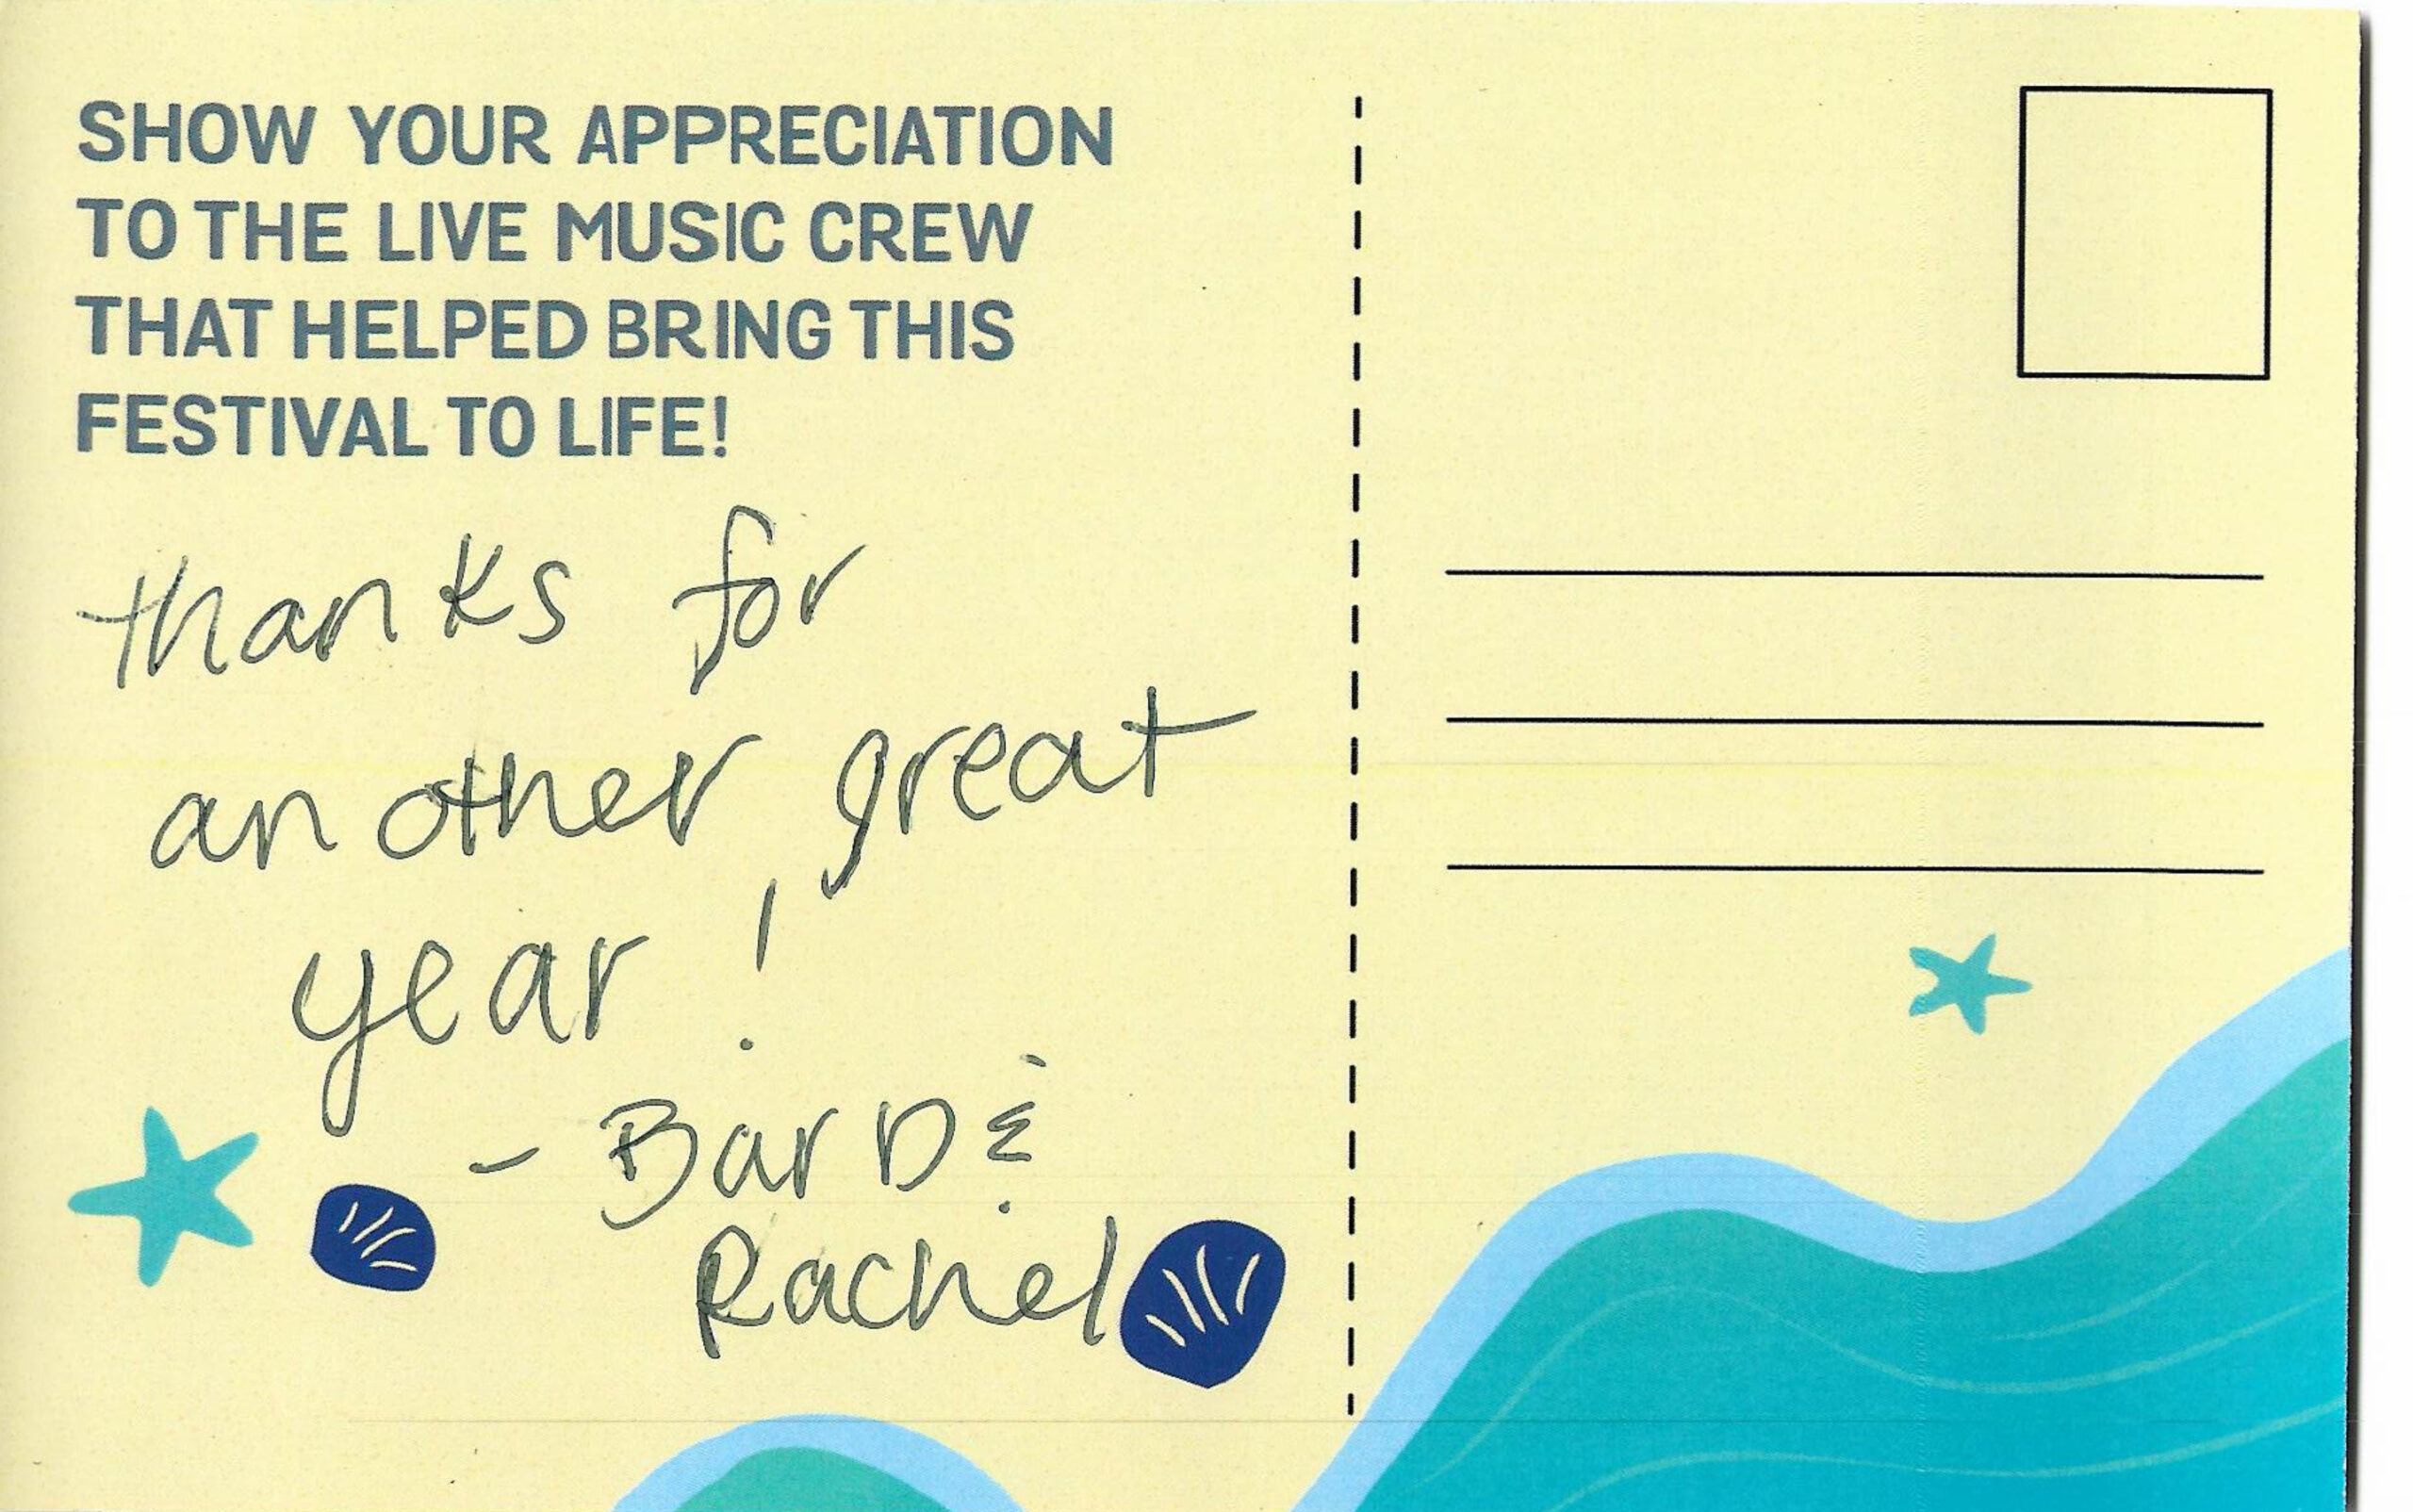 SHOW YOUR APPRECIATION
TO THE LIVE MUSIC CREW
THAT HELPED BRING THIS
FESTIVAL TO LIFE!
thanks for
another great
year!
- Bar D &
Rachel